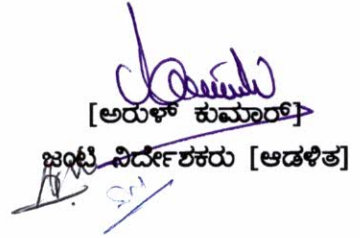 [ಅರುಳ್ ಕುಮಾರ್]
ಜಂಟಿ ನಿರ್ದೇಶಕರು [ಆಡಳಿತ]